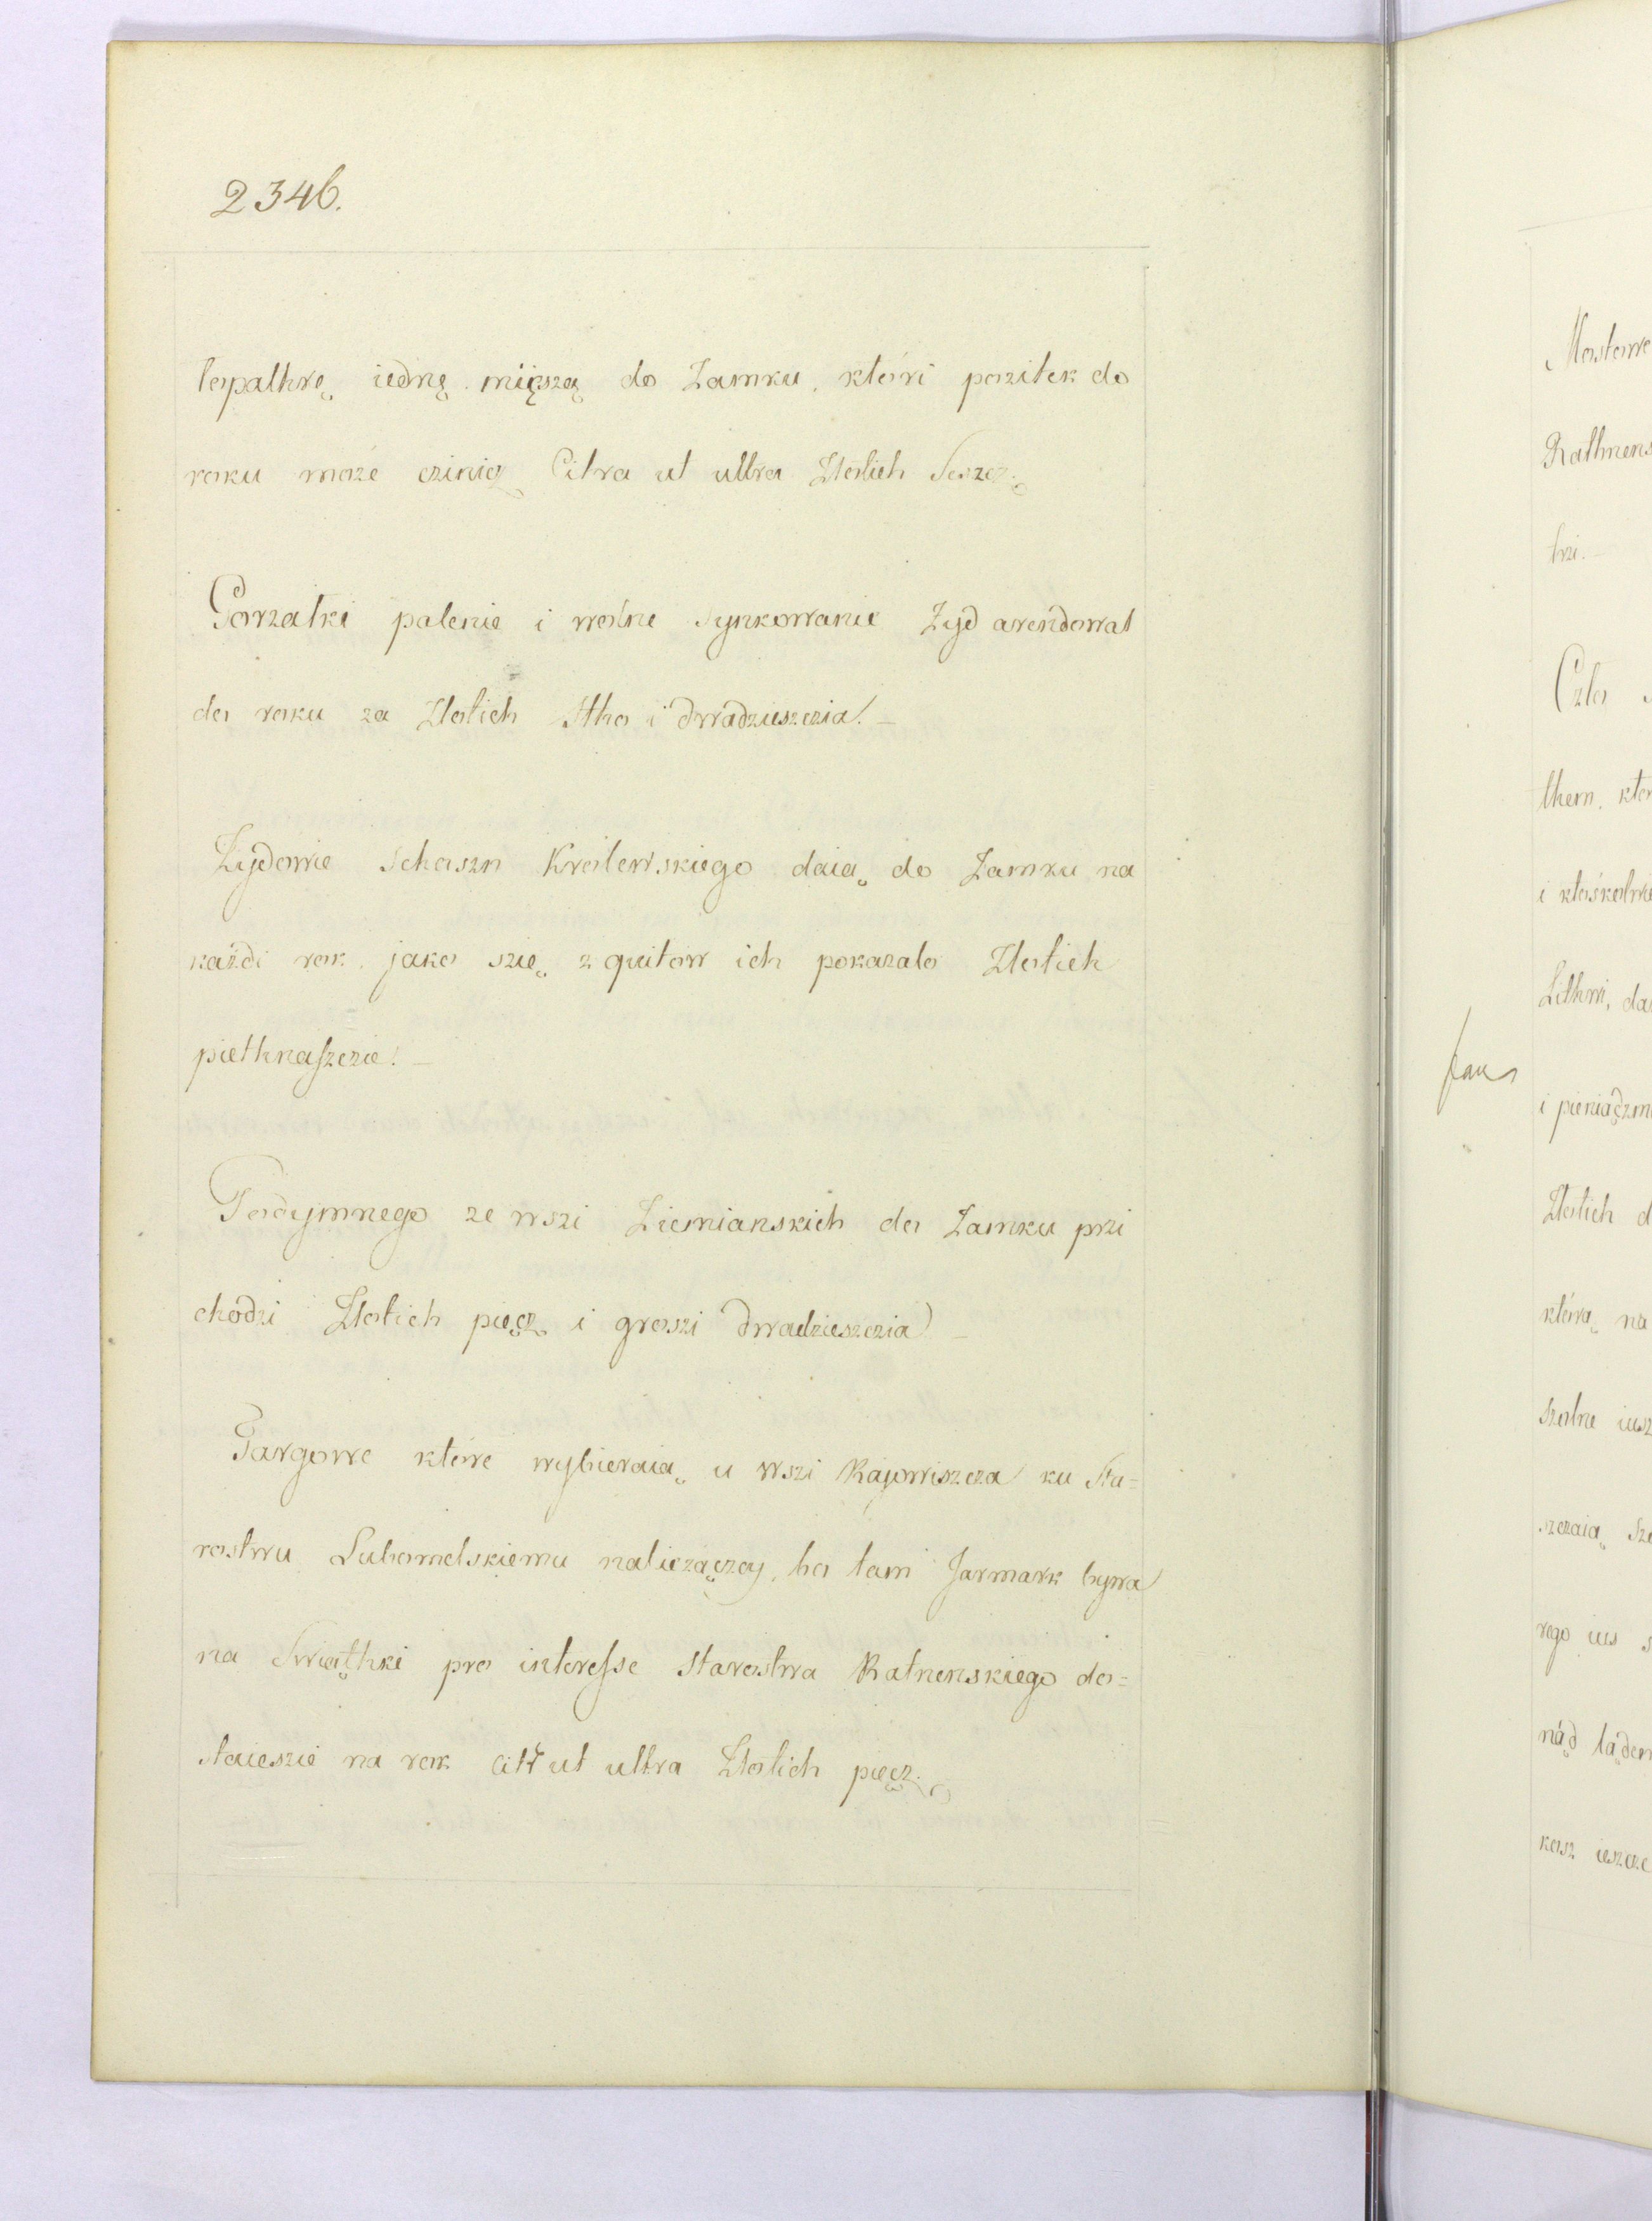 2346.
lopathrę iednę mięszą do Zamku, któri pozitek do
roku może czinicz Citra ut ultra Złotich Sescz.
Gorzałki palenie i wolne Synkowanie Zyd arendował
do roku za Złotich Stho i dwadzieszczia. –
Zydowie Schoszu Krolewskiego daią do Zamku na
kaźdi rok, jako szię z quitow ich pokazało Złotich
piethnaszczie. –
Podymnego ze wszi Ziemianskich do Zamku przi
chodzi Złotich pięcz i groszi dwadzieszczia –
Targowe które wybieraią u wszi Rajowiszcza ku Sta=
rostwu Lubomelskiemu nalieząćzey, bo tam Jarmark bywa
na Swiąthki pro interesse Starostwa Ratnenskiego do=
staieszie na rok citr ut ultra Złotich pięcz.
Mostowe
Rathnens
trzi. –
Czło
them, któ
i kłoskolwie
Lithwi, da
i pieniądzm
Złotich d
którą na
Szolne iusz
szczaią Sze
rego ius s
nád ládem
kosz ieszcze